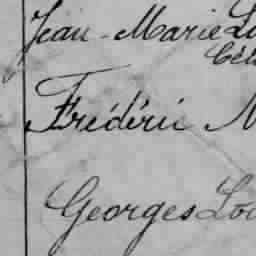 Jean-Marie Lo
Cél
Frédéric N
Georges Lou